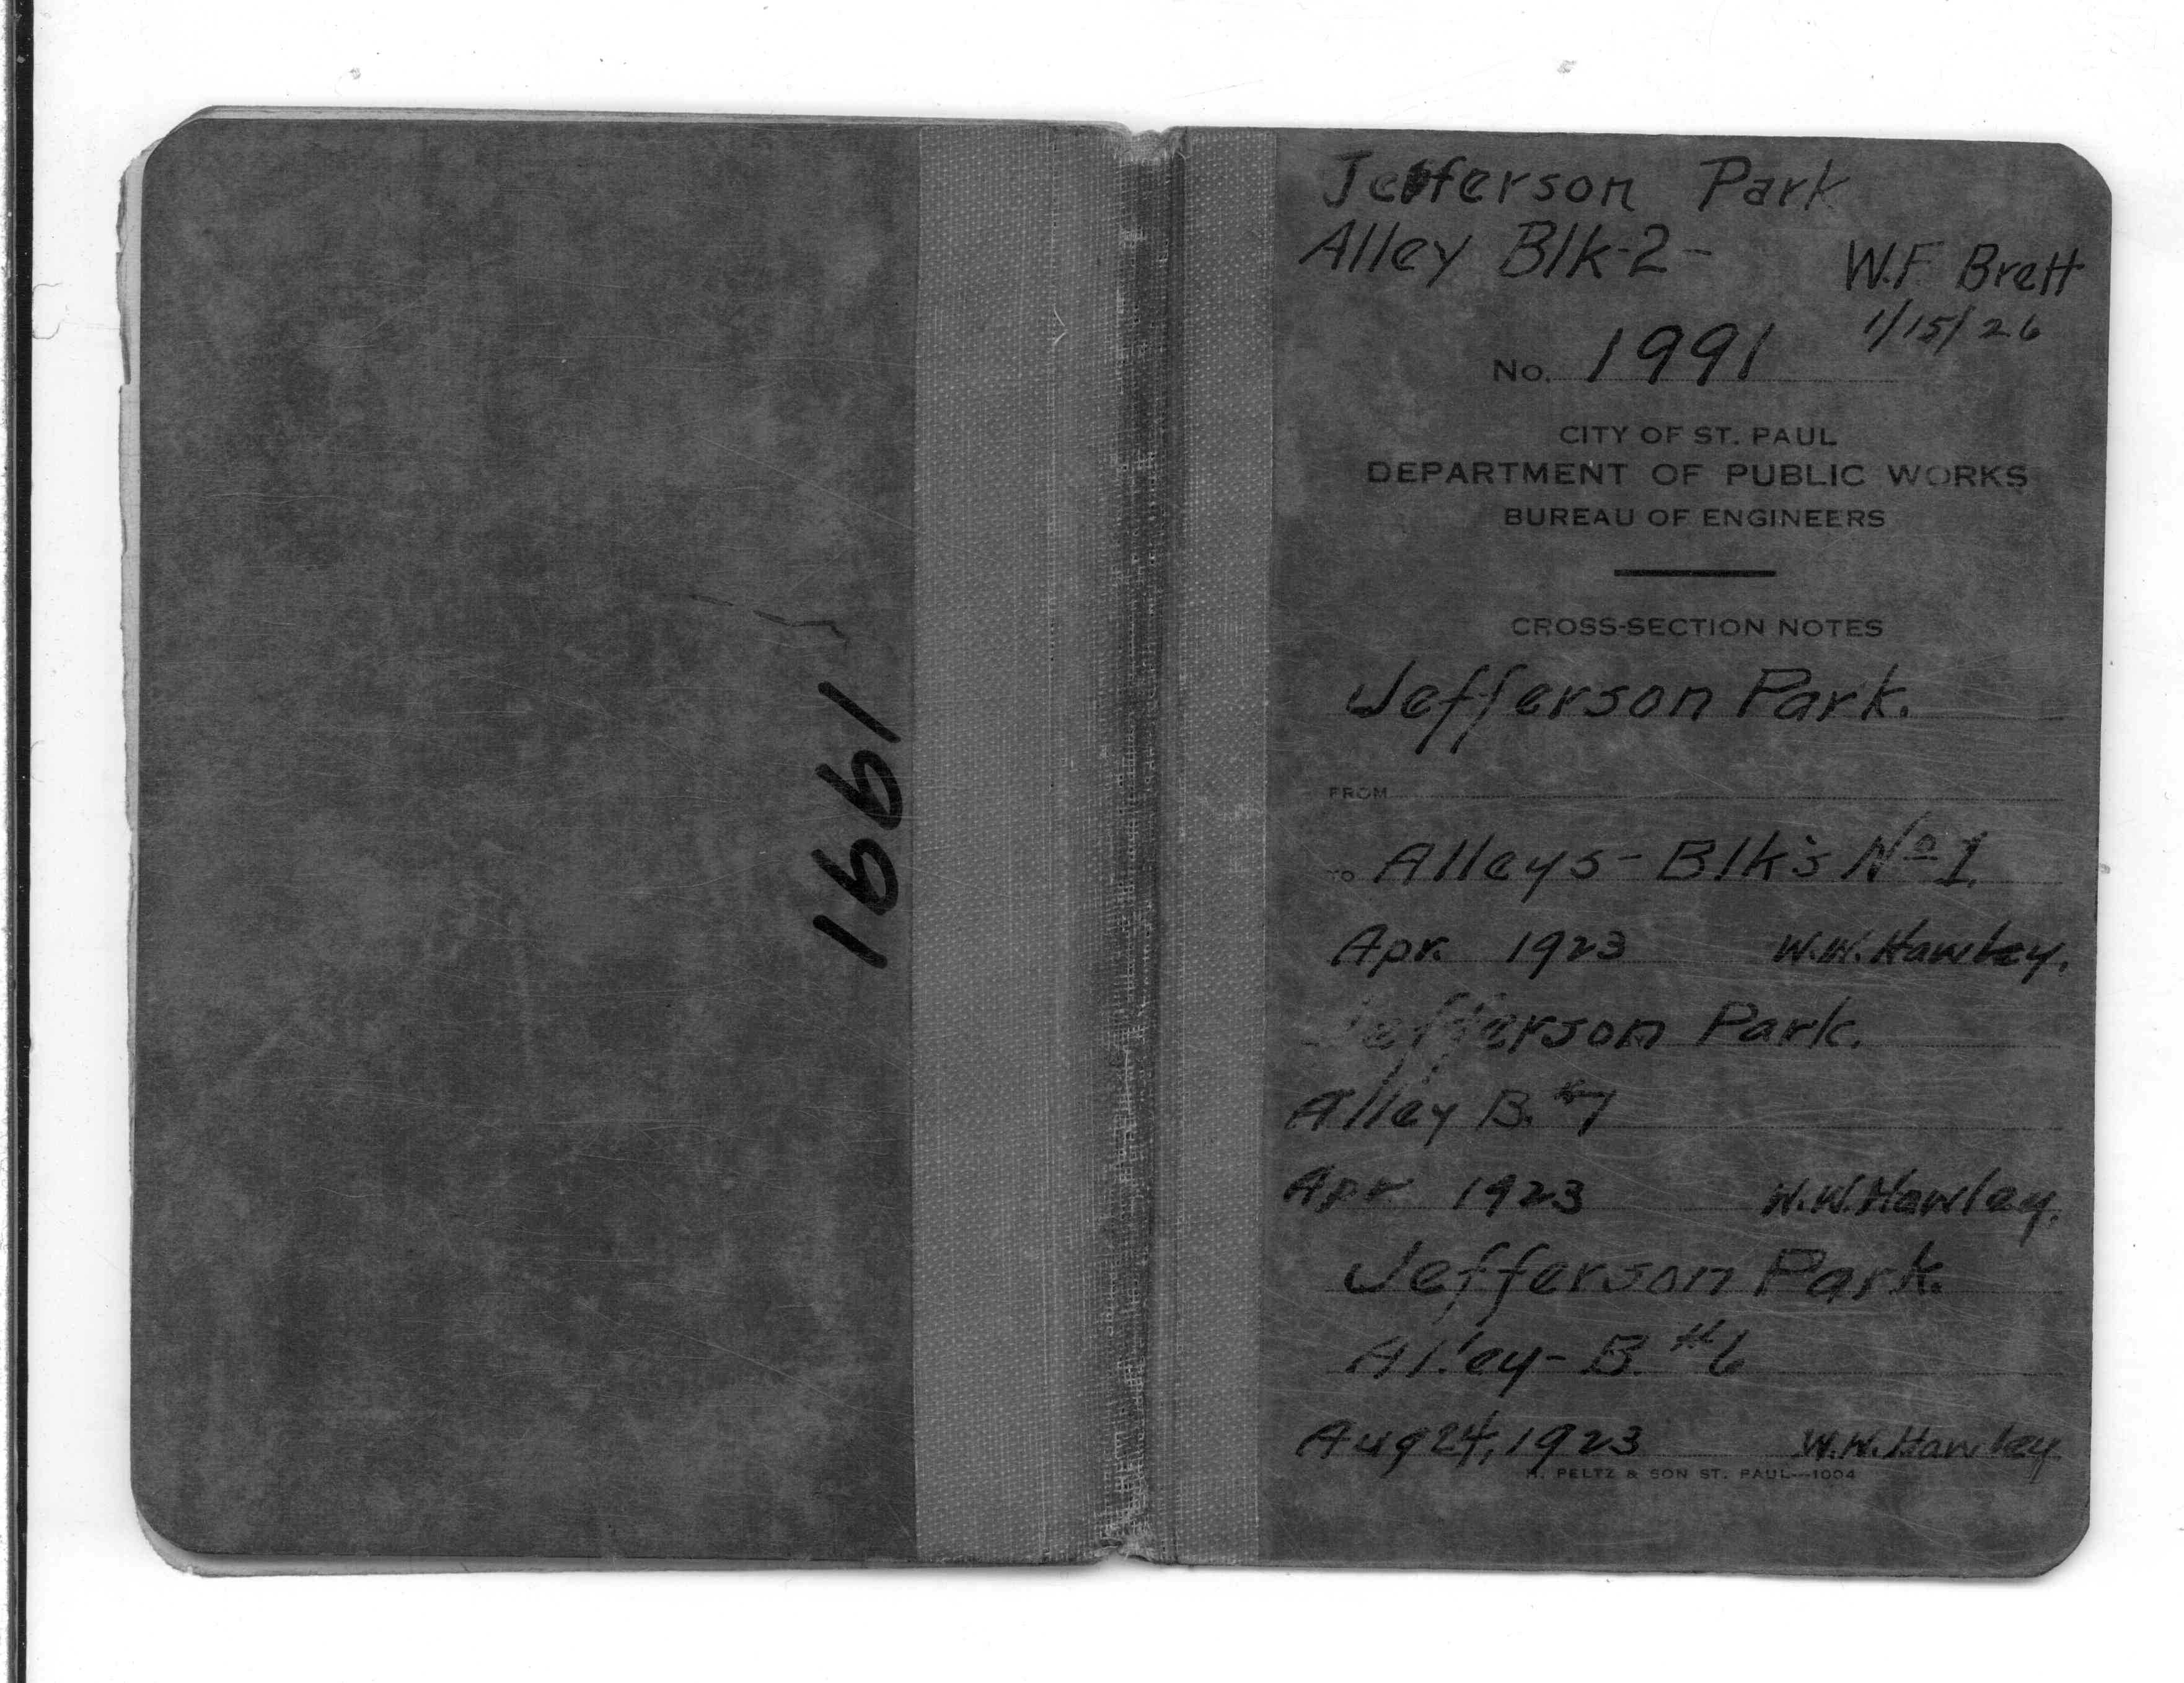 1991
Jefferson Park
Alley Blk-2-
W.F. Brett
1/15/26
No. 1991
CITY OF ST. PAUL
DEPARTMENT OF PUBLIC WORKS
BUREAU OF ENGINEERS
CROSS-SECTION NOTES
Jefferson Park.
FROM
TO Alleys - Blk's No 1
Apr. 1923 W.W. Hawley.
Jefferson Park.
Alley B. #7
Apr 1923 W.W. Hawley.
Jefferson Park.
Alley - B. #6
Aug 24, 1923 W.W. Hawley
H. PELTZ & SON ST. PAUL—1004